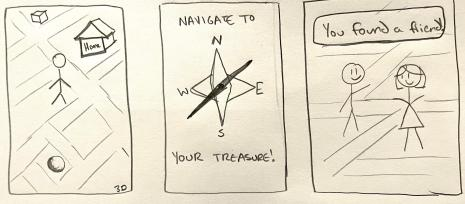 Home
3D
NAVIGATE TO
N
W E
S
YOUR TREASURE!
You found a friend